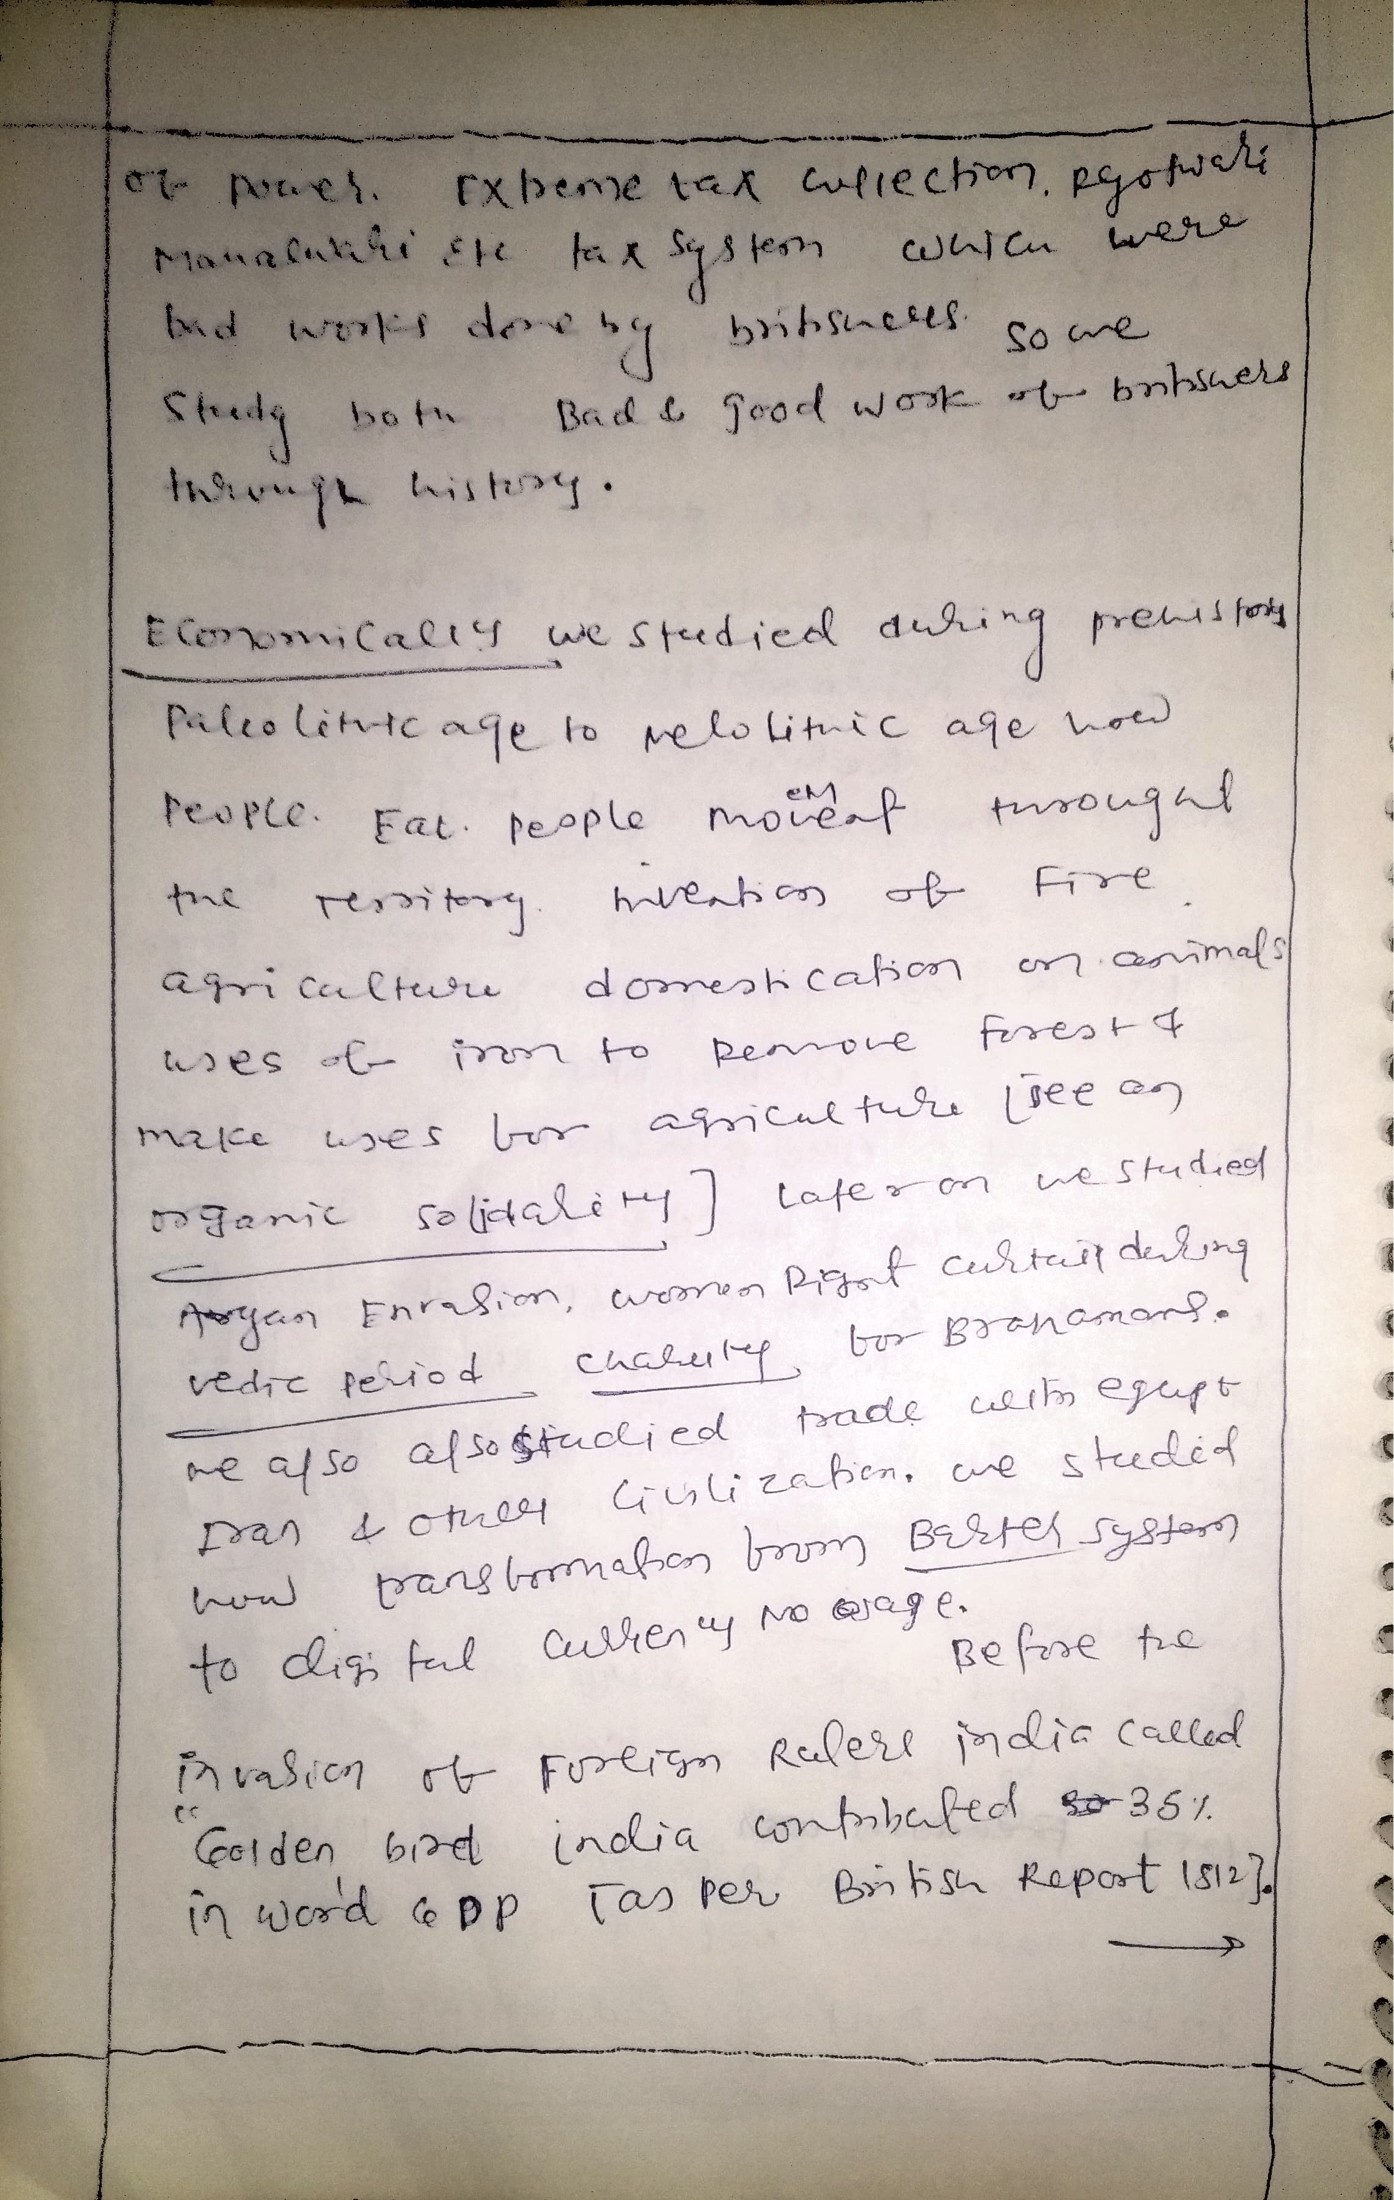 of power. Extreme tax collection, Ryotwari
Mahalwari etc tax system which were
bad works done by britishers. so we
Study both Bad & good work of britishers
through history.
Economically we studied during prehistory
Paleolithic age to Neolithic age how
People. Eat. people movement througut
the territory. invention of Fire
agriculture domestication on animals
uses of iron to Remove forest &
make uses for agriculture [see an
organic solidality] Later on we studied
Aryan Envasion, women Right curtail during
vedic period charity, for Brahamans.
we also also studied trade with egypt
Iran & other Civilization. we studied
how transformation from Barter system
to digital currency No usage.
Before the
invasion of Foreign Rulers india called
"Golden bird india contributed 35%
in world GDP [as per British Report 1812].